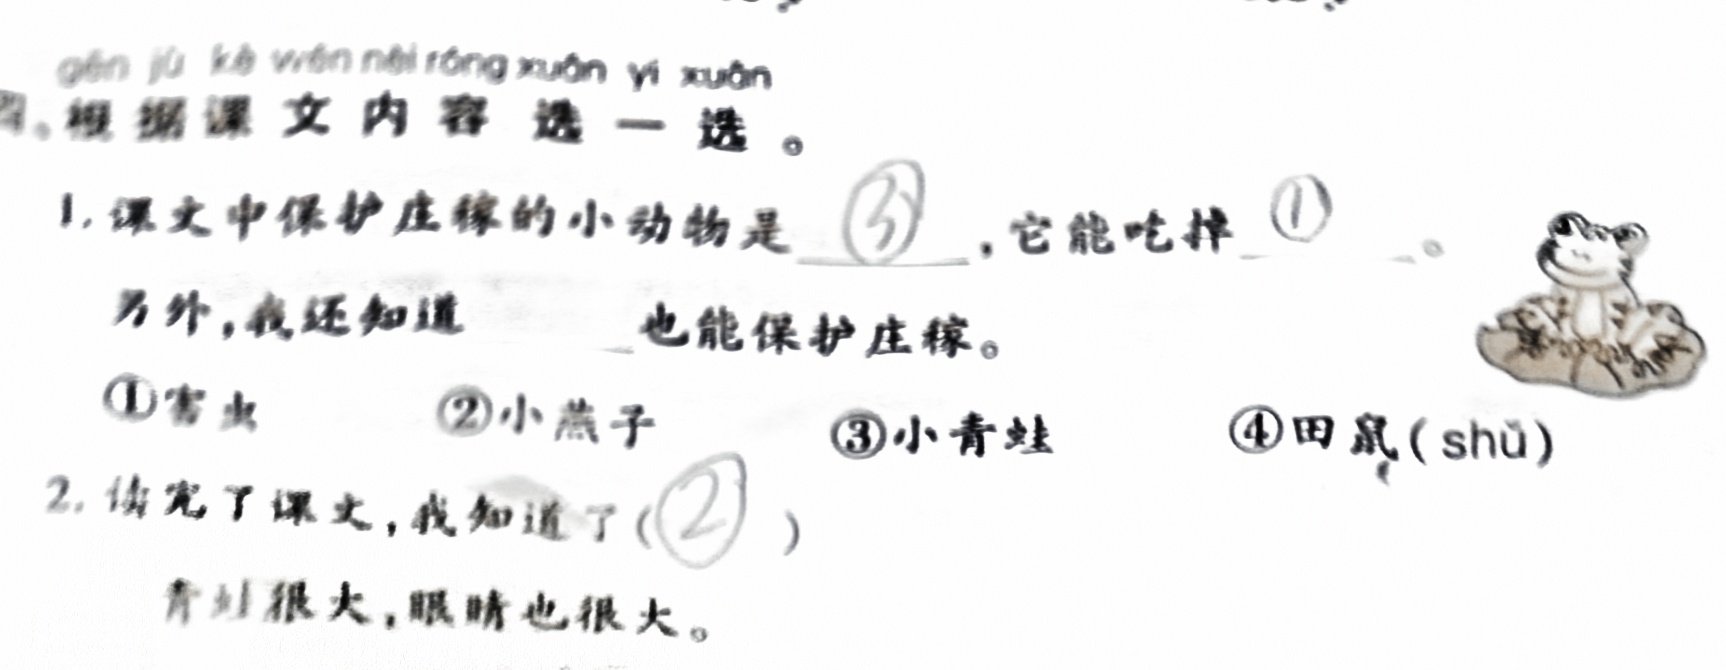 gēn jù kè wén nèi róng xuǎn yi xuǎn
四、根据课文内容选一选。
1. 课文中保护庄稼的小动物是 ③ ,它能吃掉 ① 。
另外,我还知道 也能保护庄稼。
①害虫 ②小燕子 ③小青蛙 ④田鼠(shǔ)
2. 读完了课文,我知道了( ② )
青蛙很大,眼睛也很大。